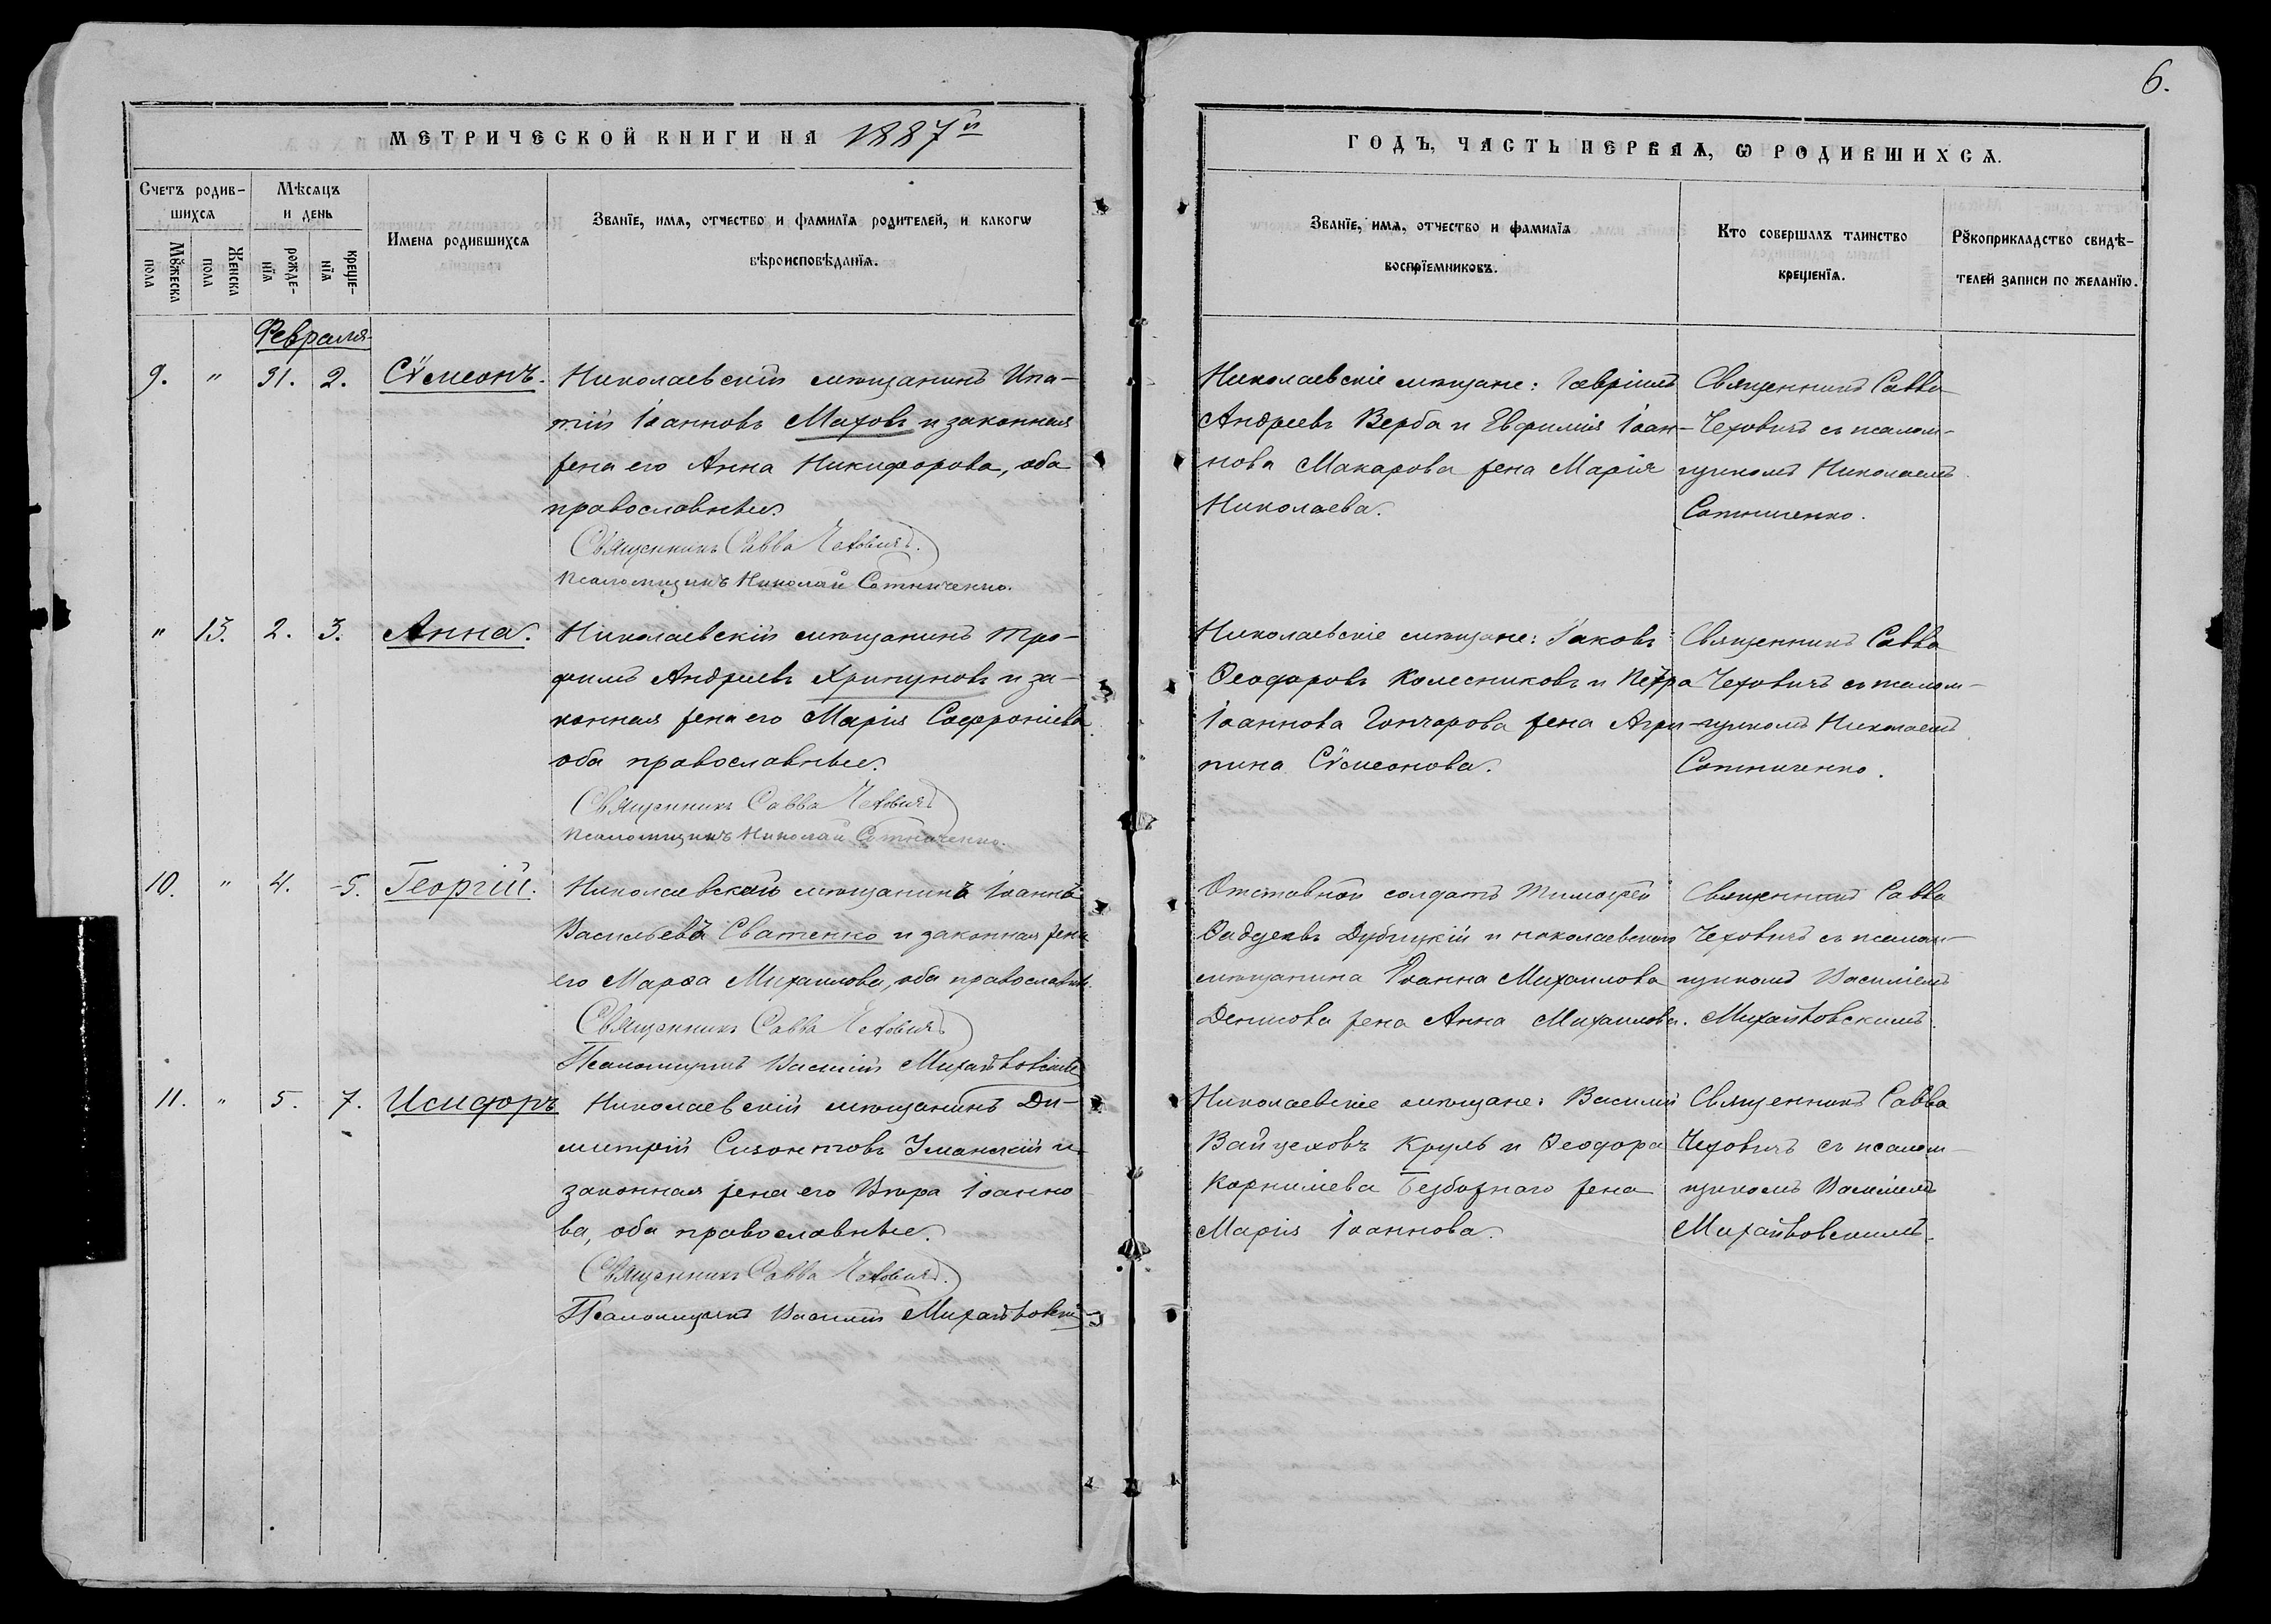 6.
МЕТРИЧЕСКОЙ КНИГИ НА 1887й
ГОДЪ, ЧАСТЬ ПЕРВАѦ, Ѡ РОДИВШИХСѦ.
Счетъ родив-
шихсѧ
Мѣсѧцъ
и день
Имена родившихсѧ
Званїе, имѧ, отчество и фамилїѧ родителей, и какогѡ
вѣроисповѣданїѧ.
Мꙋжеска
пола
Женска
пола
рожде-
нїѧ
креще-
нїѧ
Званїе, имѧ, отчество и фамилїѧ
воспрїемниковъ.
Кто совершалъ таинство
крещенїѧ.
Рꙋкоприкладство свидѣ-
телей записи по желанїю.
Февраля
9. " 31. 2. Сѵмеонъ.
Николаевскій мѣщанинъ Ипа-
тій Іоанновъ Маховъ и законная
жена его Анна Никифорова, оба
православные.
Священникъ Савва Чеховичъ.
Псаломщикъ Николай Сотниченко.
Николаевскіе мѣщане: Гавріилъ
Андреевъ Верба и Евфимія Іоан-
нова Макарова жена Марія
Николаева.
Священникъ Савва
Чеховичъ съ псалом-
щикомъ Николаемъ
Сотниченко.
" 13. 2. 3. Анна.
Николаевскій мѣщанинъ Тро-
фимъ Андреевъ Хрипуновъ и за-
конная жена его Марія Софроніева
оба православные.
Священникъ Савва Чеховичъ
Псаломщикъ Николай Сотниченко.
Николаевскіе мѣщане: Іаковъ
Ѳеодоровъ Колесниковъ и Петра
Іоаннова Гончарова жена Агри-
пина Сѵмеонова.
Священникъ Савва
Чеховичъ съ псалом-
щикомъ Николаемъ
Сотниченко.
10. " 4. 5. Георгій.
Николаевскій мѣщанинъ Іоаннъ
Васильевъ Сватенко и законная жена
его Марѳа Михаилова, оба православн.
Священникъ Савва Чеховичъ
Псаломщикъ Василій Михайловскій
Отставной солдатъ Тимоѳей
Дубицкій и николаевскаго
мѣщанина Іоанна Михаилова
Денисова жена Анна Михаилова.
Священникъ Савва
Чеховичъ съ псалом-
щикомъ Василіемъ
Михайловскимъ.
11. " 5. 7. Исидоръ
Николаевскій мѣщанинъ Ди-
митрій Сизонтовъ Уманскій и
законная жена его Вѣра Іоанно-
ва, оба православные.
Священникъ Савва Чеховичъ.
Псаломщикъ Василій Михайловскій
Николаевскіе мѣщане: Василій
Войцеховъ Круль и Ѳеодора
Корниліева Безбожнаго жена
Марія Іоаннова.
Священникъ Савва
Чеховичъ съ псалом-
щикомъ Василіемъ
Михайловскимъ.